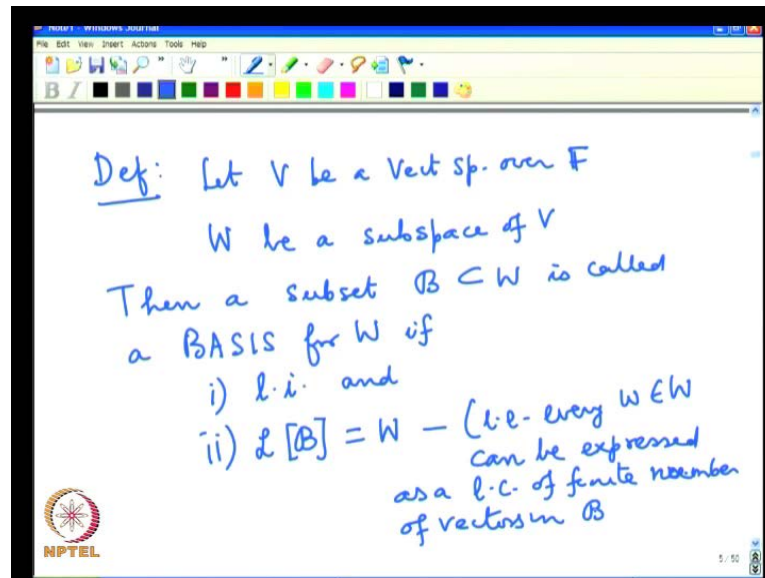 Note1 - Windows Journal
File Edit View Insert Actions Tools Help
B I
Def: Let V be a Vect sp. over F
W be a subspace of V
Then a subset B ⊂ W is called
a BASIS for W if
i) l.i. and
ii) L [B] = W – (i.e. every w ∈ W
can be expressed
as a l.c. of finite number
of vectors in B
NPTEL
5 / 50